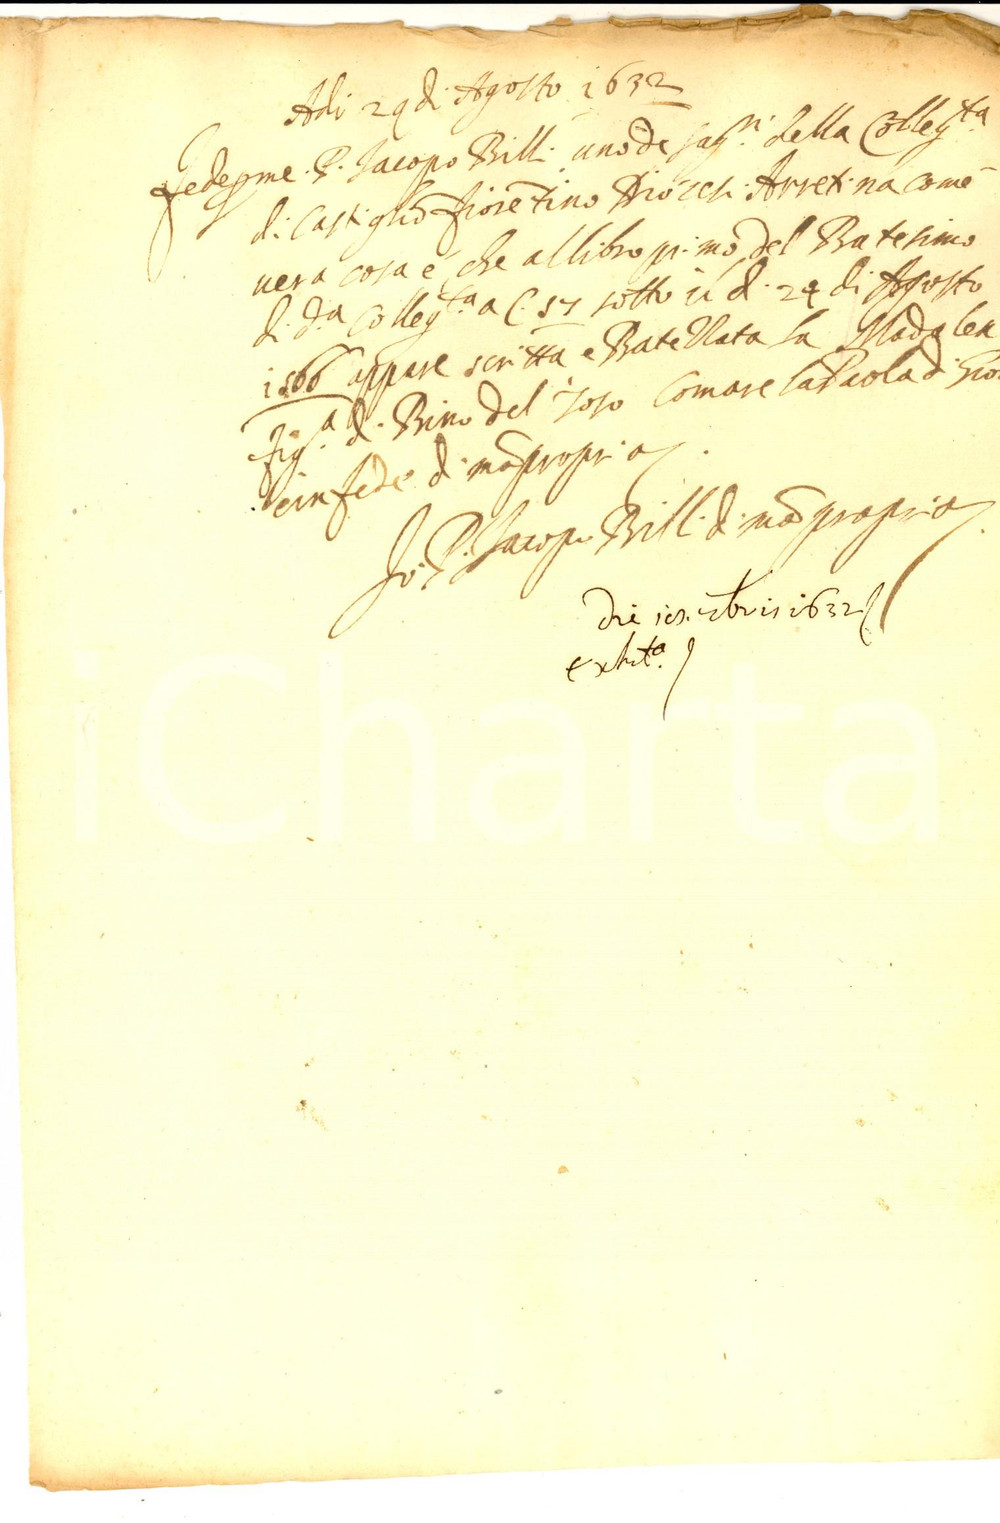 Adi 29 di Agosto 1632
Fede p me. P. Jacopo Billi. uno de Sag.ni della Colleg.ta
di Castiglio Fioretino Diocesi Arretina come
vera cosa e che al libro primo del Batesimo
di d.a Colleg.ta a C. 57 sotto il di. 24 di Agosto
1566 appare scritta e Batezata la Madalena
fig.a di. Bino del Toso Comare la Paola di Gio
e in fede di ma propria.
Io. P. Jacopo Billi di ma propria
Die 7bris 1632
exhit.a
iCharta